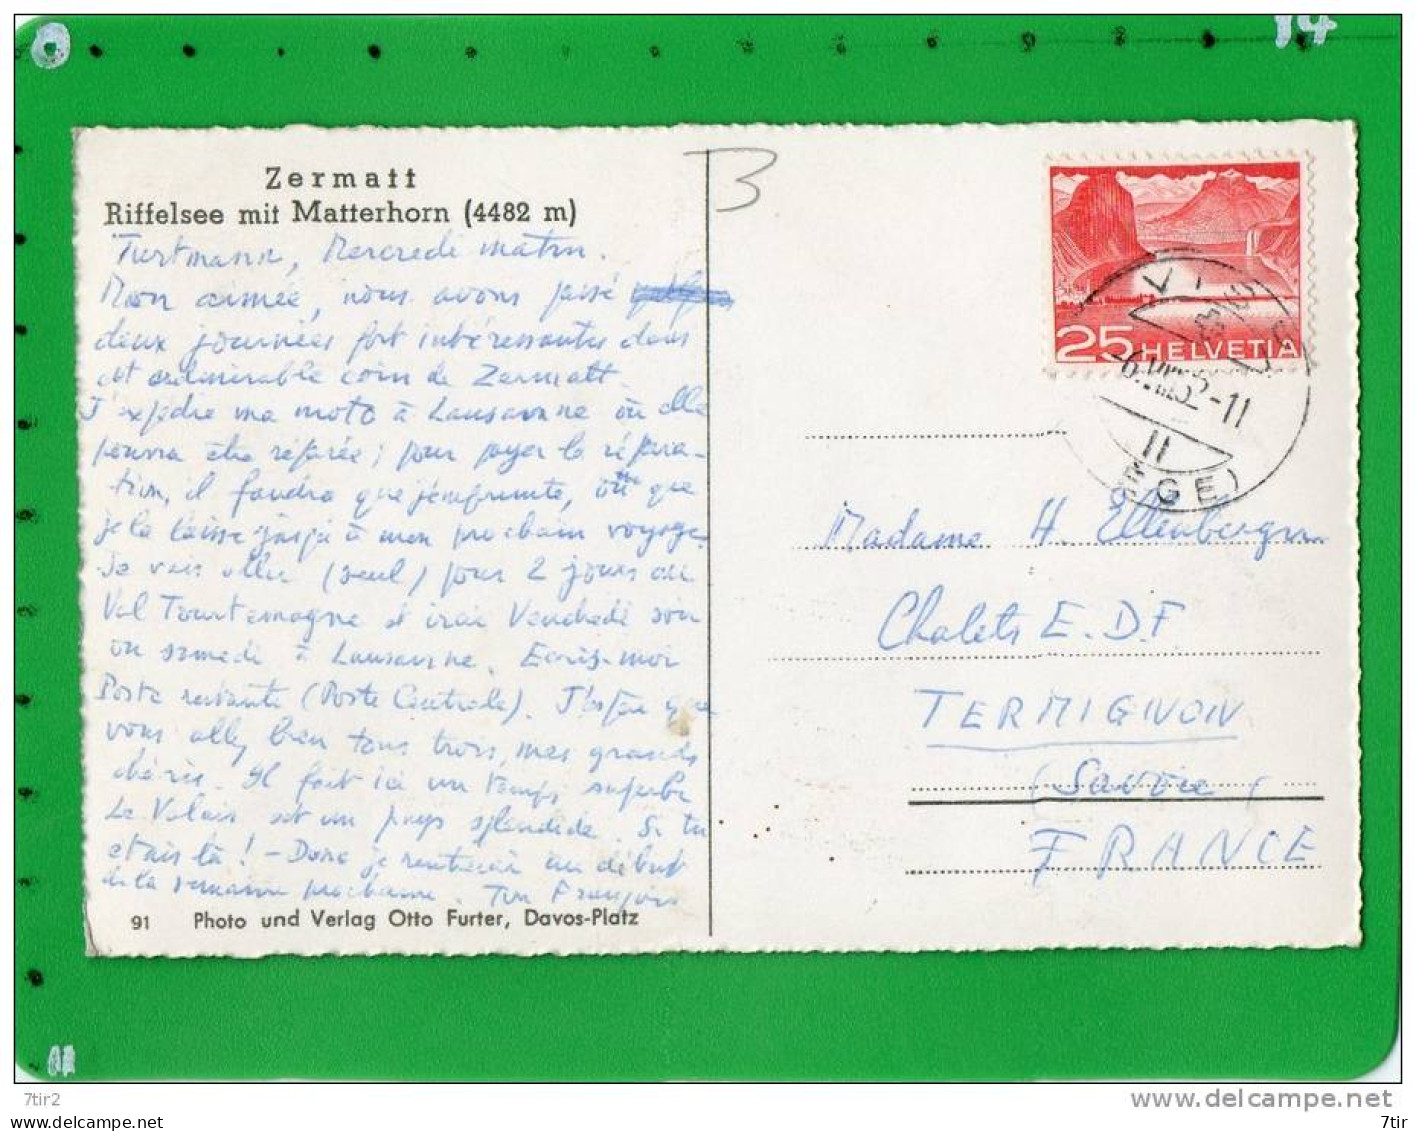 14
Zermatt
Riffelsee mit Matterhorn (4482 m)
Turtmann, Mercredi matin.
Mon aimée, nous avons passé
deux journées fort intéressantes dans
cet admirable coin de Zermatt.
J'expédie ma moto à Lausanne où elle
pourra être réparée; pour payer la répara-
tion, il faudra que j'emprunte, ou que
je la laisse jusqu'à mon prochain voyage.
Je vais aller (seul) pour 2 jours au
Val Tourtemagne et irai Vendredi soir
ou samedi à Lausanne. Ecris-moi
Poste restante (Poste Centrale). J'espère que
vous allez bien tous trois, mes grands
chéris. Il fait ici un temps superbe
Le Valais est un pays splendide. Si tu
étais là! - Donc je rentrerai au début
de la semaine prochaine. Ton François
91 Photo und Verlag Otto Furter, Davos-Platz
3
25 HELVETIA
-6.VIII.52-11
II
(EGE)
Madame H. Ellenberger
Chalets E.D.F
TERMIGNON
(Savoie)
FRANCE
www.delcampe.net
7tir2
www.delcampe.net
7tir